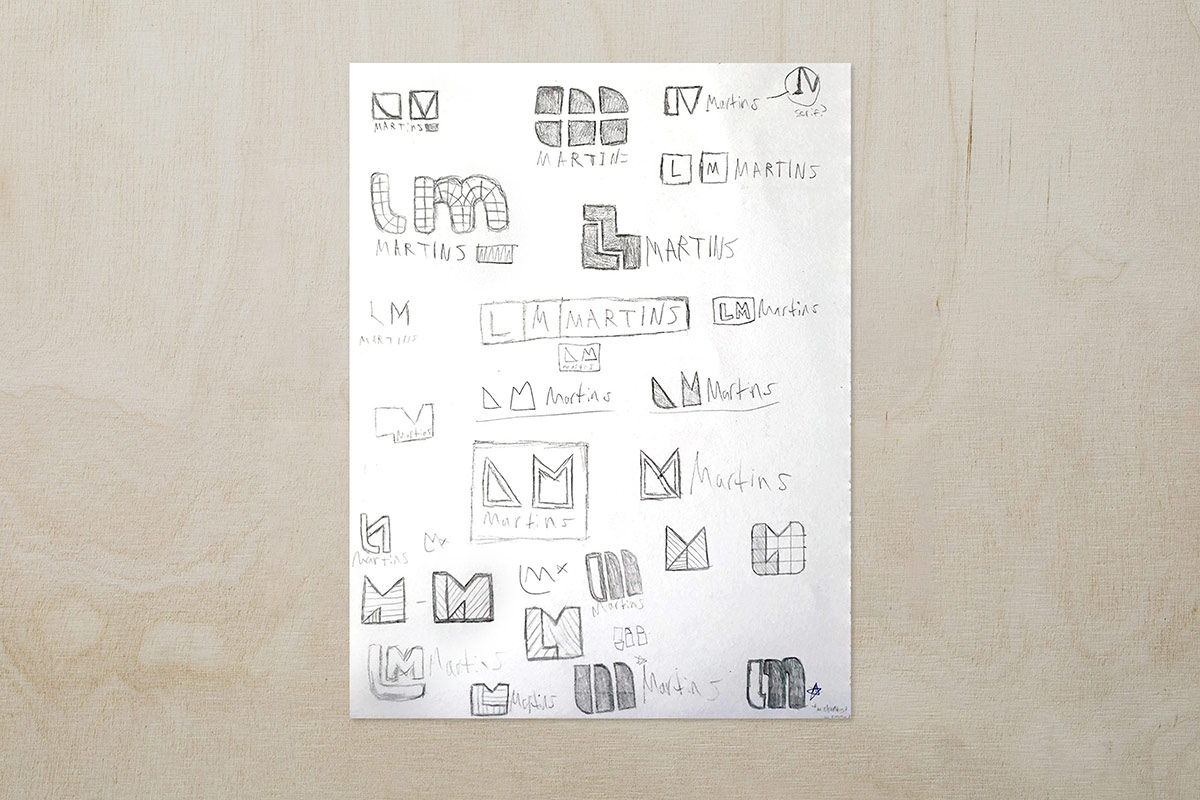 MARTINS
MARTINS
Martins
serif?
L M MARTINS
lm
MARTINS
MARTINS
LM
MARTINS
L M MARTINS
LM Martins
Martins
Martins
Martins
Martins
Martins
Martins
LM
Martins
LM
Martins
LM
LM Martins
LM Martins
Martins
lm